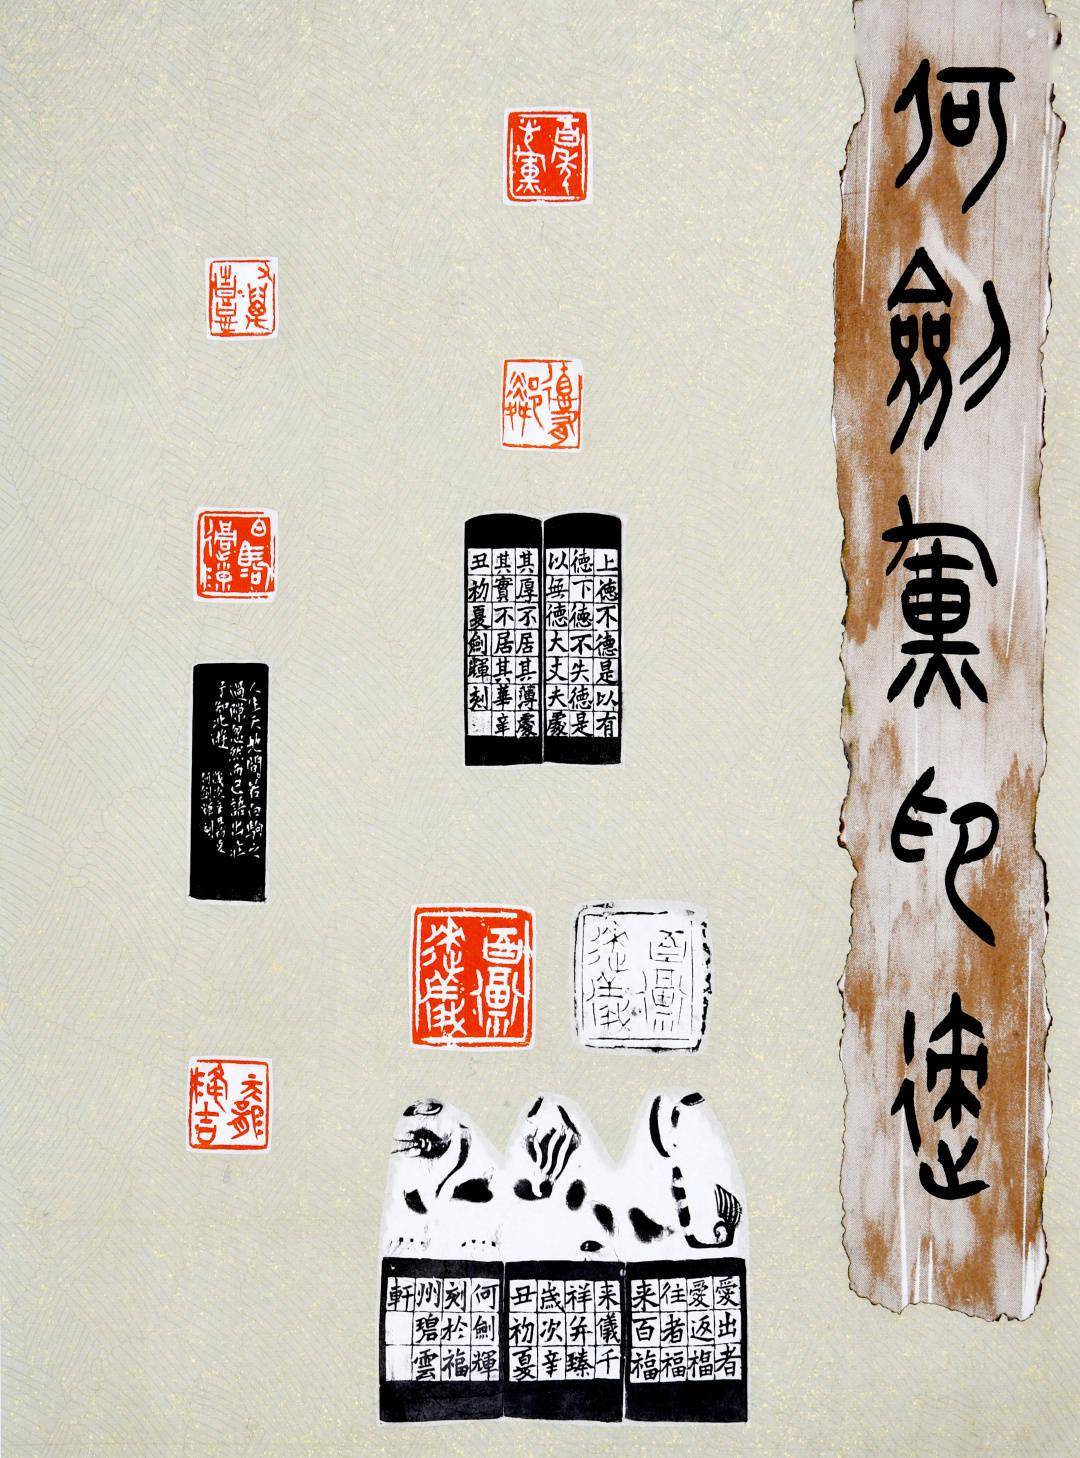 何劍煇印迹
上德不德是以有
德下德不失德是
以無德大丈夫處
其厚不居其薄處
其實不居其華辛
丑初夏劍輝刻
百福
来儀
愛出者
愛返福
往者福
来百福
来儀千
祥并臻
歲次辛
丑初夏
何劍輝
刻於福
州碧雲
軒
白駒
過隙
人生天地間若白駒之
過隙忽然而已語出莊
子知北遊
歲次辛丑初夏
何劍輝刻